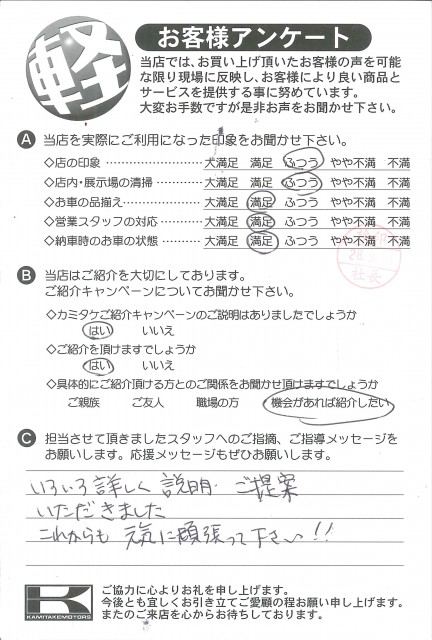 軽
お客様アンケート
当店では、お買い上げ頂いたお客様の声を可能
な限り現場に反映し、お客様により良い商品と
サービスを提供する事に努めています。
大変お手数ですが是非お声をお聞かせ下さい。
A 当店を実際にご利用になった印象をお聞かせ下さい。
◇店の印象 …………………… 大満足 満足 ふつう やや不満 不満
◇店内・展示場の清掃………… 大満足 満足 ふつう やや不満 不満
◇お車の品揃え………………… 大満足 満足 ふつう やや不満 不満
◇営業スタッフの対応………… 大満足 満足 ふつう やや不満 不満
◇納車時のお車の状態………… 大満足 満足 ふつう やや不満 不満
社長
B 当店はご紹介を大切にしております。
ご紹介キャンペーンについてお聞かせ下さい。
◇カミタケご紹介キャンペーンのご説明はありましたでしょうか
はい いいえ
◇ご紹介を頂けますでしょうか
はい いいえ
◇具体的にご紹介頂ける方とのご関係をお聞かせ頂けますでしょうか
ご親族 ご友人 職場の方 機会があれば紹介したい
C 担当させて頂きましたスタッフへのご指摘、ご指導メッセージを
お願いします。応援メッセージもぜひお願いします。
いろいろ詳しく説明・ご提案
いただきました
これからも 元気に頑張って下さい!!
K
KAMITAKEMOTORS
ご協力に心よりお礼を申し上げます。
今後とも宜しくお引き立てご愛顧の程お願い申し上げます。
またのご来店を心からお待ちしております。